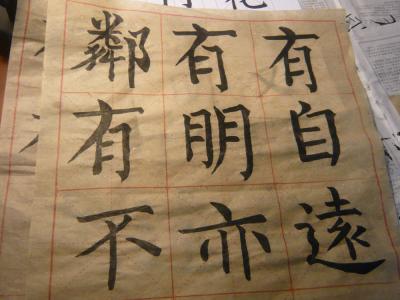 有自遠
有朋亦
鄰有不